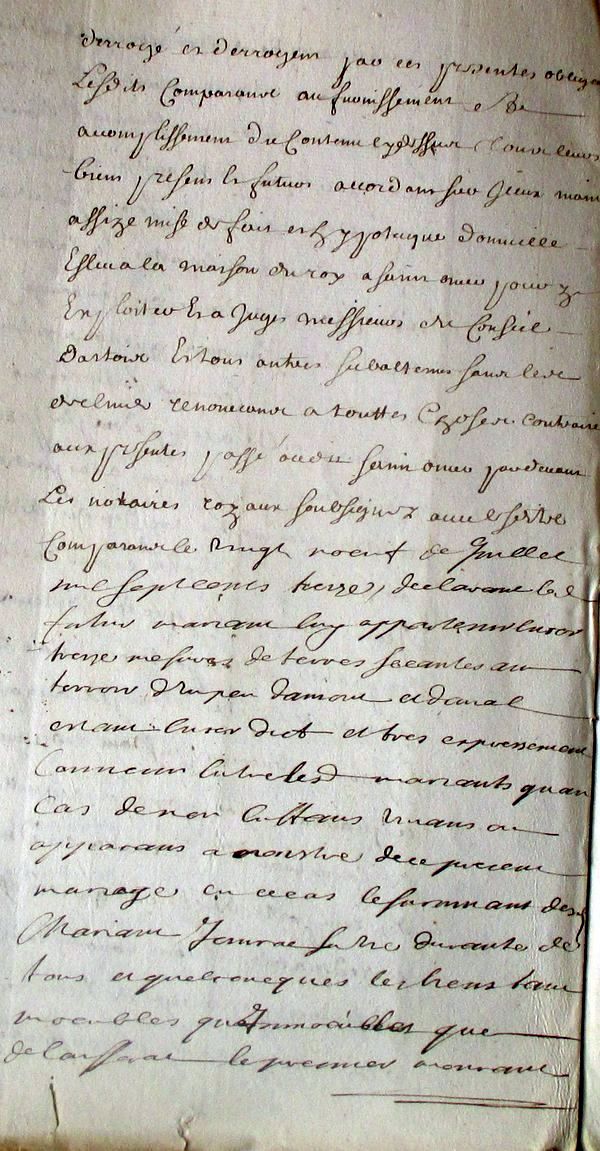 derrogé et derrogent par ces presentes obligean
Lesdits Comparans au furnissement et
accomplissement du Contenu cydessus sour leurs
biens presens et futurs accordans sur iceux main
assize mise de fait et hypotecque domicille
Esleu a la maison du roy a saint omer pour y
Exploiter Et a Juges messieurs du Conseil
dartois Et tous autres subalternes sans les
decliner renonceans a touttes Choses contraire
aux presentes passé audit saint omer pardevant
Les notaires royaux soubsignez avec lesdits
Comparans le vingt noeuf de Juillet
mil sept cents treize, declarant led
futur mariant luy appartenir encor
treize mesures de terres seantes au
terroir d'Elnes damont et daval
estant encor dict et tres expressement
Convenu entre lesd mariants quan
Cas de non Enffans vivans ou
apparans a naistre de ce present
mariage en ce cas le survivant desd
Mariant Jouira sa vie durante de
tous et quelconcques les biens tant
moeubles qu Immoeubles que
delaisserat le premier mourant